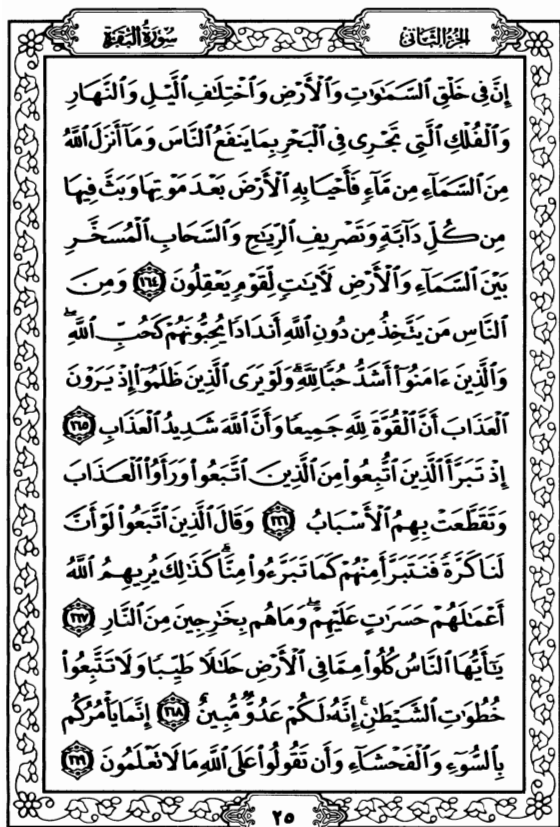 سُورَةُ البَقَرَةِ
الجُزْءُ الثَّانِى
إِنَّ فِى خَلْقِ ٱلسَّمَٰوَٰتِ وَٱلْأَرْضِ وَٱخْتِلَٰفِ ٱلَّيْلِ وَٱلنَّهَارِ
وَٱلْفُلْكِ ٱلَّتِى تَجْرِى فِى ٱلْبَحْرِ بِمَا يَنفَعُ ٱلنَّاسَ وَمَآ أَنزَلَ ٱللَّهُ
مِنَ ٱلسَّمَآءِ مِن مَّآءٍ فَأَحْيَا بِهِ ٱلْأَرْضَ بَعْدَ مَوْتِهَا وَبَثَّ فِيهَا
مِن كُلِّ دَآبَّةٍ وَتَصْرِيفِ ٱلرِّيَٰحِ وَٱلسَّحَابِ ٱلْمُسَخَّرِ
بَيْنَ ٱلسَّمَآءِ وَٱلْأَرْضِ لَءَايَٰتٍ لِّقَوْمٍ يَعْقِلُونَ ١٦٤ وَمِنَ
ٱلنَّاسِ مَن يَتَّخِذُ مِن دُونِ ٱللَّهِ أَندَادًا يُحِبُّونَهُمْ كَحُبِّ ٱللَّهِۖ
وَٱلَّذِينَ ءَامَنُوٓا۟ أَشَدُّ حُبًّا لِّلَّهِۗ وَلَوْ يَرَى ٱلَّذِينَ ظَلَمُوٓا۟ إِذْ يَرَوْنَ
ٱلْعَذَابَ أَنَّ ٱلْقُوَّةَ لِلَّهِ جَمِيعًا وَأَنَّ ٱللَّهَ شَدِيدُ ٱلْعَذَابِ ١٦٥
إِذْ تَبَرَّأَ ٱلَّذِينَ ٱتُّبِعُوا۟ مِنَ ٱلَّذِينَ ٱتَّبَعُوا۟ وَرَأَوُا۟ ٱلْعَذَابَ
وَتَقَطَّعَتْ بِهِمُ ٱلْأَسْبَابُ ١٦٦ وَقَالَ ٱلَّذِينَ ٱتَّبَعُوا۟ لَوْ أَنَّ
لَنَا كَرَّةً فَنَتَبَرَّأَ مِنْهُمْ كَمَا تَبَرَّءُوا۟ مِنَّاۗ كَذَٰلِكَ يُرِيهِمُ ٱللَّهُ
أَعْمَٰلَهُمْ حَسَرَٰتٍ عَلَيْهِمْۖ وَمَا هُم بِخَٰرِجِينَ مِنَ ٱلنَّارِ ١٦٧
يَٰٓأَيُّهَا ٱلنَّاسُ كُلُوا۟ مِمَّا فِى ٱلْأَرْضِ حَلَٰلًا طَيِّبًا وَلَا تَتَّبِعُوا۟
خُطُوَٰتِ ٱلشَّيْطَٰنِۚ إِنَّهُۥ لَكُمْ عَدُوٌّ مُّبِينٌ ١٦٨ إِنَّمَا يَأْمُرُكُم
بِٱلسُّوٓءِ وَٱلْفَحْشَآءِ وَأَن تَقُولُوا۟ عَلَى ٱللَّهِ مَا لَا تَعْلَمُونَ ١٦٩
٢٥